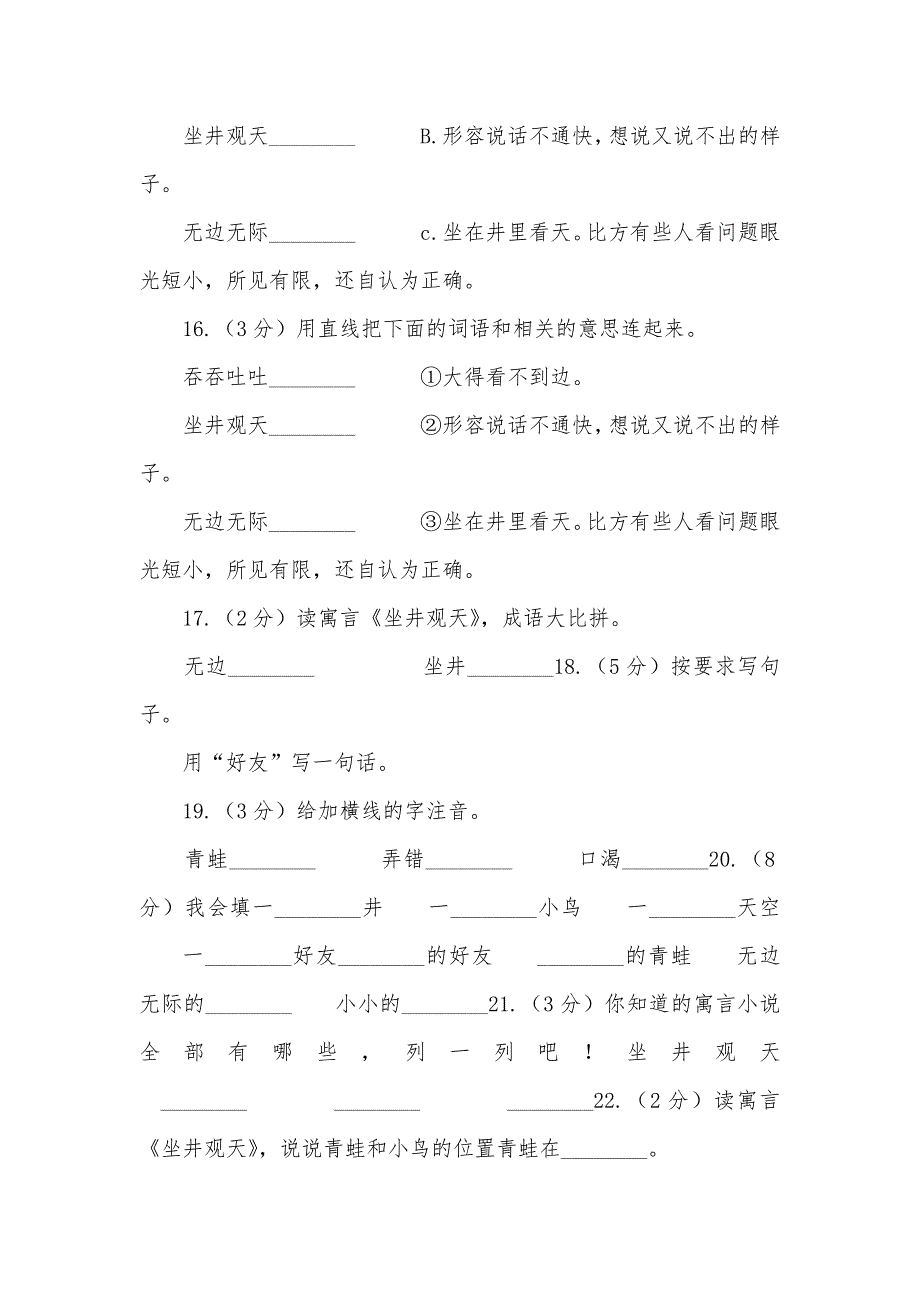 坐井观天________ B.形容说话不通快，想说又说不出的样
子。
无边无际________ c.坐在井里看天。比方有些人看问题眼
光短小，所见有限，还自认为正确。
16.（3 分）用直线把下面的词语和相关的意思连起来。
吞吞吐吐________ ①大得看不到边。
坐井观天________ ②形容说话不通快，想说又说不出的样
子。
无边无际________ ③坐在井里看天。比方有些人看问题眼
光短小，所见有限，还自认为正确。
17.（2 分）读寓言《坐井观天》，成语大比拼。
无边________ 坐井________18.（5 分）按要求写句
子。
用“好友”写一句话。
19.（3 分）给加横线的字注音。
青蛙________ 弄错________ 口渴________20.（8
分）我会填一________井 一________小鸟 一________天空
一________好友________的好友 ________的青蛙 无边
无际的________ 小小的________21.（3 分）你知道的寓言小说
全部有哪些，列一列吧！坐井观天
________ ________ ________22.（2 分）读寓言
《坐井观天》，说说青蛙和小鸟的位置青蛙在________。